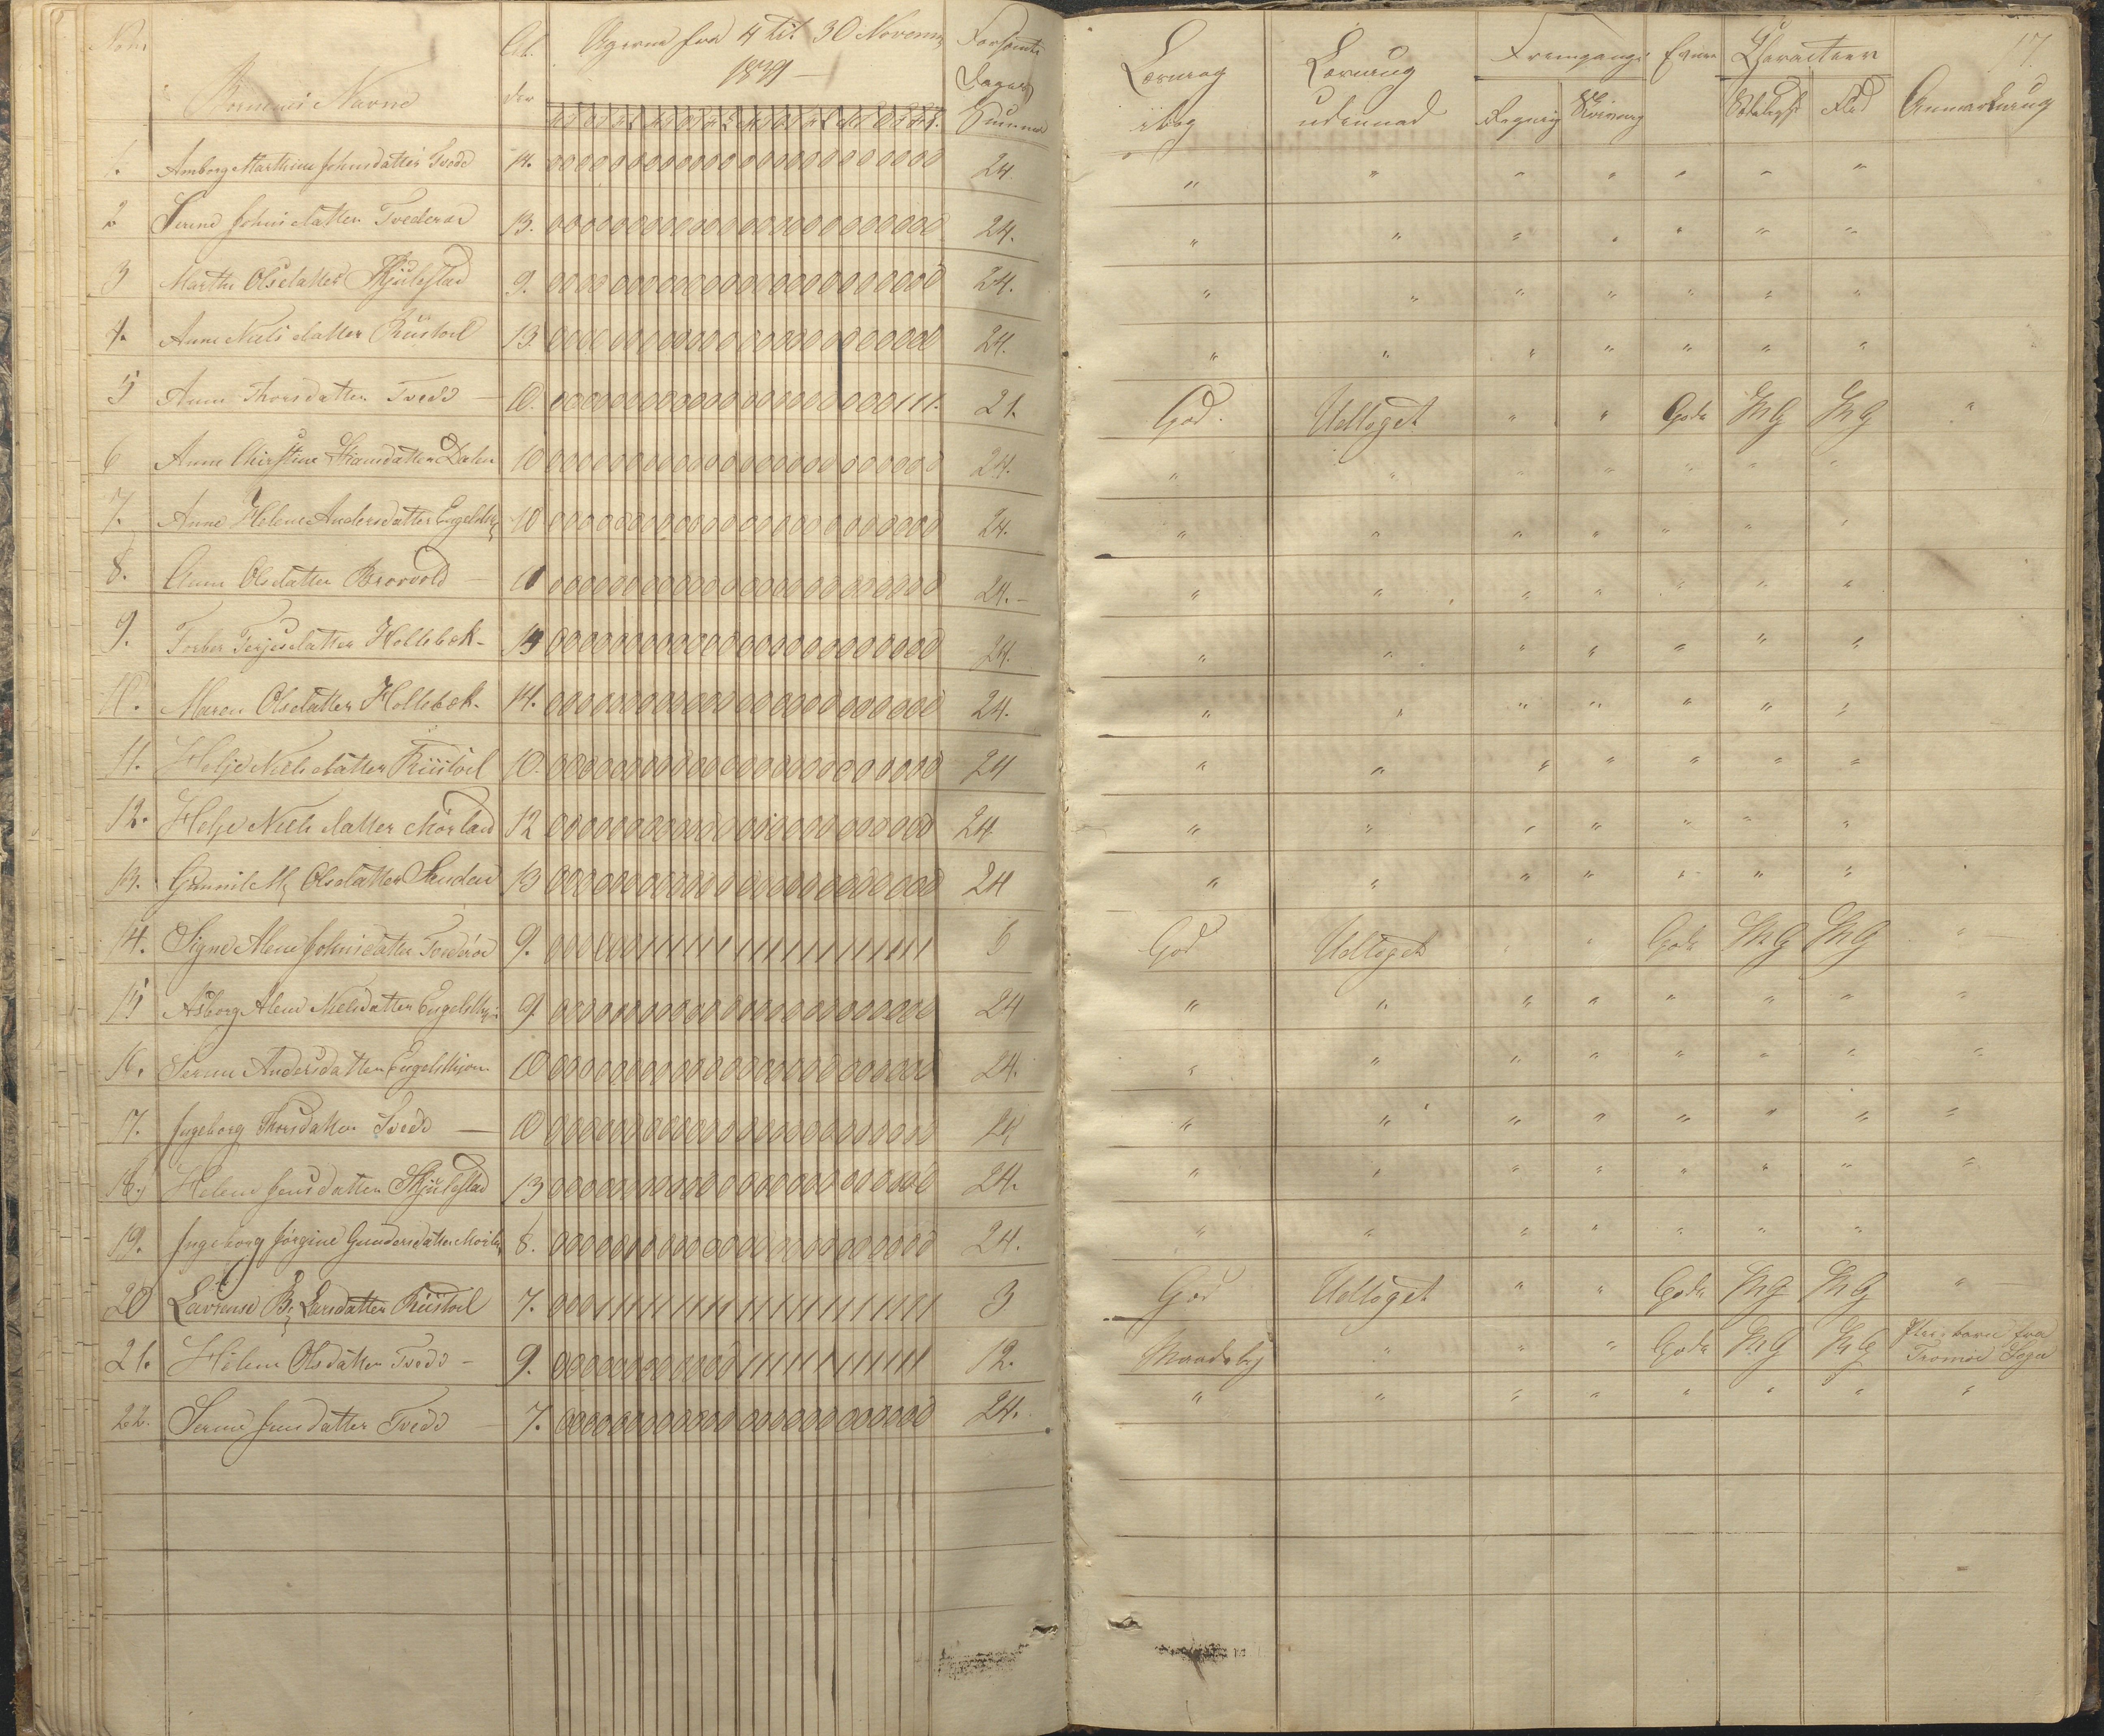 Børnenes Navne
Al-
der
Ugerne fra 4 til 30 Novem
1839
Forsømte
Dages
Summa
Læsning
i Bog
Lærning
udennad
Fremgangs
Regning
Skrivning
Evner
Characteer
Flid
Anmærkning
17.
1. Amborg Marthine Johnsdatter Tvede 14. 0 0 0 0 0 0 0 0 0 0 0 0 0 0 0 0 0 0 0 0 0 0 0 0 24. " " " " " " "
2 Serine Johnsdatter Tvederøe 13. 0 0 0 0 0 0 0 0 0 0 0 0 0 0 0 0 0 0 0 0 0 0 0 0 24. " " " " " " "
3 Marthe Olsdatter Skjulestad 9. 0 0 0 0 0 0 0 0 0 0 0 0 0 0 0 0 0 0 0 0 0 0 0 0 24. " " " " " " "
4. Anne Nielsdatter Riistøel 13. 0 0 0 0 0 0 0 0 0 0 0 0 0 0 0 0 0 0 0 0 0 0 0 0 24. " " " " " " "
5 Anne Thorsdatter Tvede — 10. 0 0 0 0 0 0 0 0 0 0 0 0 0 0 0 0 0 0 0 0 0 1 1 1. 21. God. Udtoget " " Gode MG MG "
6 Anne Chirstine Hansdatter Dalen 10 0 0 0 0 0 0 0 0 0 0 0 0 0 0 0 0 0 0 0 0 0 0 0 0 24. " " " " " " "
7. Anne Helene Andersdatter Engelskj 10 0 0 0 0 0 0 0 0 0 0 0 0 0 0 0 0 0 0 0 0 0 0 0 0 24. " " " " " " "
8. Anne Olsdatter Brovold — 10 0 0 0 0 0 0 0 0 0 0 0 0 0 0 0 0 0 0 0 0 0 0 0 0 24. — " " " " " " "
9. Torber Terjesdatter Hollebek - 0 0 0 0 0 0 0 0 0 0 0 0 0 0 0 0 0 0 0 0 0 0 0 0 24. " " " " " " "
10. Maren Olsdatter Hollebek - 14. 0 0 0 0 0 0 0 0 0 0 0 0 0 0 0 0 0 0 0 0 0 0 0 0 24. " " " " " " "
11. Helje Nielsdatter Riistøel 10. 0 0 0 0 0 0 0 0 0 0 0 0 0 0 0 0 0 0 0 0 0 0 0 0 24 " " " " " " "
12. Helje Nielsdatter Mørland 12 0 0 0 0 0 0 0 0 0 0 0 0 0 0 0 0 0 0 0 0 0 0 0 0 24 " " " " " " "
13. Gunnild M. Olsdatter Sanden 13 0 0 0 0 0 0 0 0 0 0 0 0 0 0 0 0 0 0 0 0 0 0 0 0 24 " " " " " " " "
14. Signe Alene Johnsdatter Tvederøe 9. 0 0 0 0 0 0 1 1 1 1 1 1 1 1 1 1 1 1 1 1 1 1 1 1 6 God Udtoget " " Gode MG MG " —
15 Asborg Alene Nielsdatter Engelskj 9. 0 0 0 0 0 0 0 0 0 0 0 0 0 0 0 0 0 0 0 0 0 0 0 0 24 " " " " " " " "
16. Serine Andersdatter Engelskjøn 10 0 0 0 0 0 0 0 0 0 0 0 0 0 0 0 0 0 0 0 0 0 0 0 0 24. " " " " " " " "
17. Ingeborg Thorsdatter Tvede — 10 0 0 0 0 0 0 0 0 0 0 0 0 0 0 0 0 0 0 0 0 0 0 0 0 24 " " " " " " " "
18. Helene Jensdatter Skjulestad 13 0 0 0 0 0 0 0 0 0 0 0 0 0 0 0 0 0 0 0 0 0 0 0 0 24. " " " " " " " "
19. Ingeborg Jørgine Gundersdatter Mørla 8. 0 0 0 0 0 0 0 0 0 0 0 0 0 0 0 0 0 0 0 0 0 0 0 0 24. " " " " " " "
20 Lavrense B. Larsdatter Riistøel 7. 0 0 0 1 1 1 1 1 1 1 1 1 1 1 1 1 1 1 1 1 1 1 1 1 3 God Udtoget " " Gode MG MG " —
21. Helene Olsdatter Tvede - 9. 0 0 0 0 0 0 0 0 0 0 0 0 1 1 1 1 1 1 1 1 1 1 1 1 12. Maadelig " " " Gode MG MG Pleiebarn fra
Tromøe Sogn
22. Serine Jensdatter Tvede — 7. 0 0 0 0 0 0 0 0 0 0 0 0 0 0 0 0 0 0 0 0 0 0 0 0 24. " " " " " " " "